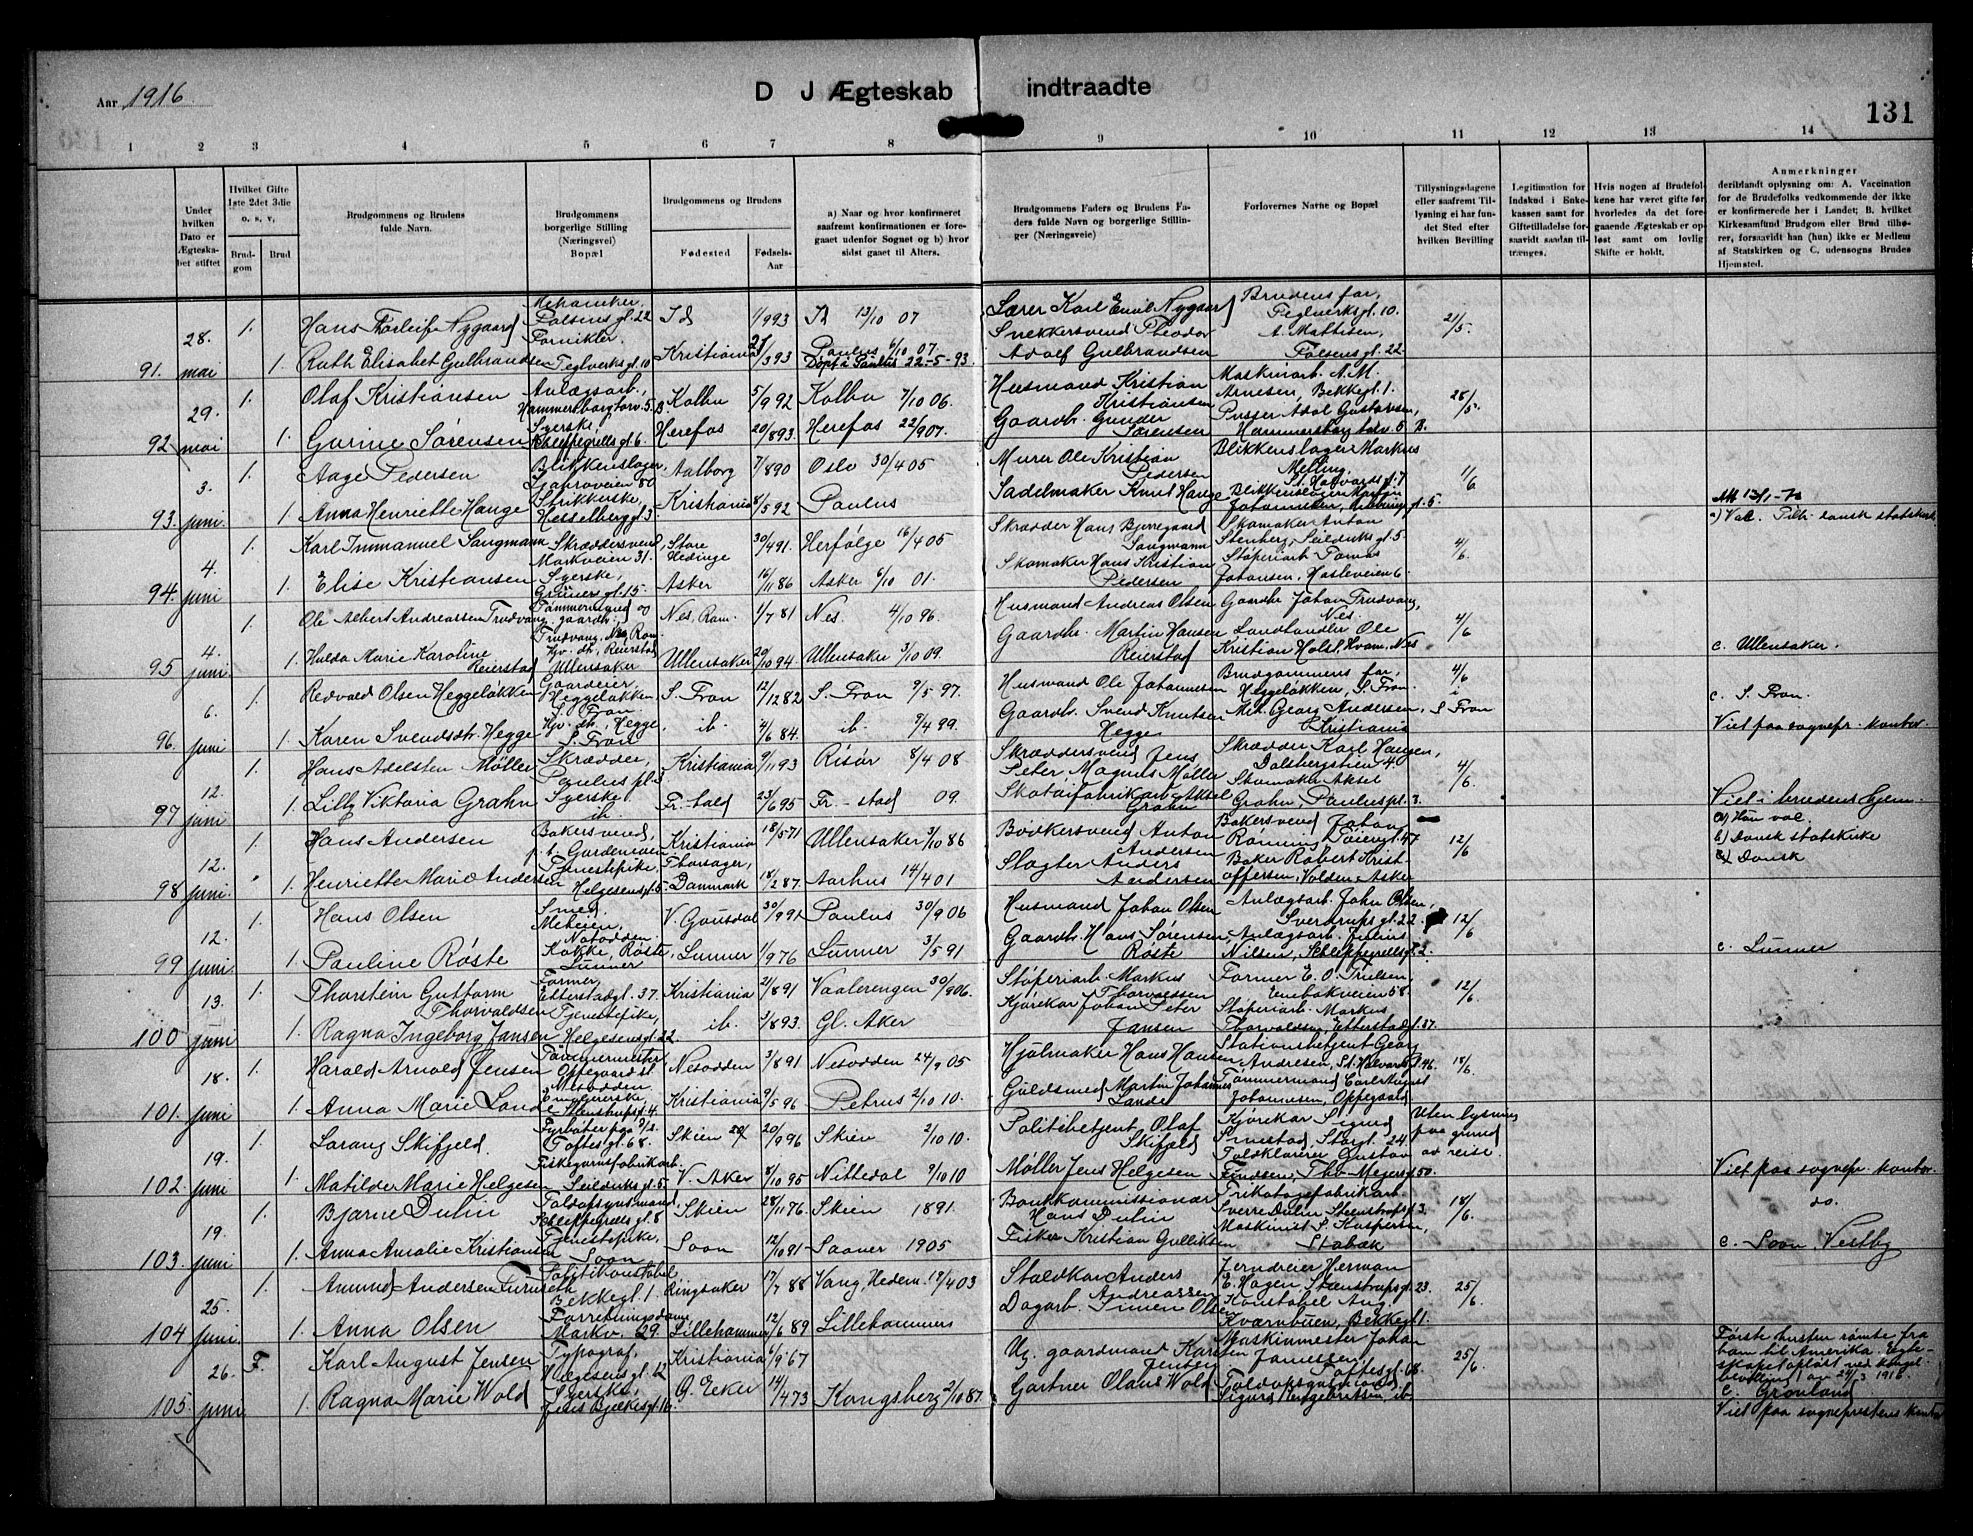 Aar 1916
D J Ægteskab indtraadte
131
1 2 3 4 5 6 7 8 9 10 11 12 13 14
Under hvilken Dato er Ægteskabet stiftet
Hvilket Gifte 1ste 2det 3die o. s. v,
Brudgom
Brud
Brudgommens og Brudens fulde Navn.
Brudgommens borgerlige Stilling (Næringsvei) Bopæl
Brudgommens og Brudens
Fødested
Fødsels-Aar
a) Naar og hvor konfirmeret saafremt konfirmationen er foregaaet udenfor Sognet og b) hvor sidst gaaet til Alters.
Brudgommens Faders og Brudens Faders fulde Navn og borgerlige Stillinger (Næringsveie)
Forlovernes Navne og Bopæl
Tillysningsdagene eller saafremt Tillysning ei har fundet Sted efter hvilken Bevilling
Legitimation for Indskud i Enkekassen samt for Giftetilladelse forsaavidt saadan tiltrænges.
Hvis nogen af Brudefolkene har været gifte før, hvorledes da det foregaaende Ægteskab er opløst samt om lovlig Skifte er holdt.
Anmerkninger deriblandt oplysning om: A. Vaccination for de Brudefolks vedkommende der ikke er konfirmerede her i Landet; B. hvilket Kirkesamfund Brudgom eller Brud tilhører, forsaavidt han (hun) ikke er Medlem af Statskirken og C. udensogns Brudes Hjemsted.
91. 28. mai 1. Hans Thorleif Nygaard Mekaniker, Falsens gt. 22 Id 1/9 93 Id 13/10 07 Karl Emil Nygaard Brudens far, Teglverksgt. 10. 21/5.
1. Ruth Elisabet Gulbrandsen Fornikler. Teglverksgt. 10 Kristiania 21/3 93 Paulus 6/10 07. Døpt i Paulus 22-5-93. Snekkersvend Theodor Adolf Gulbrandsen A. Mathisen, Falsens gt. 22
92 29. mai 1. Olaf Kristiansen Anlægsarb., Hammersborgtorv. 5 B Kolbu 5/9 92 Kolbu 7/10 06. Husmand Kristian Kristiansen Maskinarb. A. M. Arnesen, Bekkegt. 1. 28/5.
1. Gurine Sørensen Syerske, Schleppegrells gt. 6. Herefos 20/8 93. Herefos 22/9 07. Gaardb. Gunder Sørensen Pusser Adol Gustavsen, Hammersborg torv. 5 B.
93. 3. juni. 1. Aage Pedersen Blikkenslager, 80 Aalborg 7/8 90 Oslo 30/4 05 Murer Ole Kristian Pedersen Blikkenslager Markus Melling. St. Halvards gt. 7 11/6
1. Anna Henriette Hauge Strikkerske, Hesselbergt. 3. Kristiania 8/5 92 Paulus Sadelmaker Knut Hauge Blikkenslager
a) Vac. Tilh. dansk statskirke
94 4. juni 1. Karl Immanuel Sangmann Skræddersvend, Markveien 31. Store Hedinge 30/4 91. Herfølge 16/4 05 Skrædder Hans Bjerregaard Sangmann Skomaker Anton Stenberg, Seilduks gt. 5 4/6.
1. Elise Kristiansen Syerske, Grüners gt. 15. Asker 16/11 86 Asker 6/10 01. Skomaker Hans Kristian Pedersen Støperiarb. Tomas Johansen, Hasleveien 6.
95 4. juni. 1. Ole Albert Andreassen Trudvang Tømmermand og gaardbr. Trudvang, Nes, Rom. Nes, Rom. 1/7 81 Nes. 4/10 96. Husmand Andreas Olsen Gaardbr. Johan Trudvang, Nes 4/6
1. Hulda Marie Karoline Reierstad Hv. dt., Reierstad Ullensaker Ullensaker 20/10 94. Ullensaker 3/10 09. Gaardb. Martin Hansen Reierstad Landhandler Ole Kristian Holst, Kvam, Nes c. Ullensaker.
96. 6. juni 1. Redvald Olsen Heggeløkken Gaardeier, Heggeløkken S. Fron. S. Fron 12/12 82 S. Fron 9/5 97. Husmand Ole Johannesen Brudgommens far, Heggeløkken, S. Fron. 4/6 i S Fron c. S. Fron.
1. Karen Svendsdt. Hegge Hv. dt., Hegge S. Fron ib. 4/6 84. ib. 9/4 99. Gaardb. Svend Knutsen Hegge Mek. Georg Andersen, Kristiania Viet paa sognepr. kontor.
97 12. juni 1. Hans Adelsten Møller Skrædder, Paulus pl. 3 Kristiania 9/11 93 Risør 8/4 08 Skræddersvend Jens Peter Magnus Møller Skrædder Karl Hansen, Dalsbergstien 4. 4/6
1. Lilly Viktoria Grahn Syerske ib Fr.-stad 23/6 95 Fr-stad 09. Skotøifabrikarb. Aksel Grahn Skomaker Aksel Grahn, Pauluspl. 3. Viet i brudens hjem.
98 12. juni. 1. Hans Andersen Bakersvend, p. t. Gardermoen Kristiania 18/5 71 Ullensaker 3/10 86 Bødkersvend Anton Andersen Bakersvend Johan Rønning, Tøiengt. 47 12/6
1. Henriette Marie Andersen Tjenestepike, Helgesens gt. 5 Thorsager, Danmark 18/2 87. Aarhus 14/4 01 Slagter Anders Andersen Baker Robert Kristoffersen, Volden, Asker
a) Han vac.
b) Dansk statskirke
c) Dansk
99 12. juni. 1. Hans Olsen Smed. Notodden V. Gausdal 30/9 91 Paulus 30/9 06 Husmand Johan Olsen Anlægsarb. John Olsen, Sverdrups gt. 22. 12/6
1. Pauline Røste Kokke, Røste, Lunner Lunner 1/9 76 Lunner 3/5 91 Gaardb. Hans Sørensen Røste Anlægsarb. Julius Nilsen, Schleppegrellsgt. 2. c. Lunner
100 13. juni 1. Thorstein Guttorm Thorvaldsen Former, Etterstadgt. 37. Kristiania 21/8 91 Vaalerengen 30/9 06. Støperiarb. Markus Thorvaldsen Former E. O. Truelsen, Enebakveien 58. 12/6
1. Ragna Ingeborg Jansen Tjenestepike, Helgesensgt. 22 ib. 3/8 93. Gl. Aker Kjørekar Johan Peter Jansen Støperiarb. Markus Thorvaldsen, Etterstadgt. 37.
101. 18. juni 1. Harald Arnold Jensen Tømmermester Oppegaard st. Nesodden Nesodden 3/8 91 Nesodden 24/9 05 Hjulmaker Hans Hansen Stationsbetjent Georg Andresen, St. Halvardsgt. 46. 18/6.
1. Anna Marie Lande Steenstrupsgt. 4. Kristiania 9/5 96 Petrus 2/10 10. Guldsmed Martin Johannes Lande Tømmermand Carl August Johannesen, Oppegaard
102. 19. juni 1. Sarang Skifjeld. Fyrbøter Toftes gt. 68. Skien 20/9 96 Skien 2/10 10. Politibetjent Olaf Skifjeld Kjørekar Sigurd Smestad, Storgt. 24 Uten lysning paa grund av reise.
1. Matilde Marie Helgesen Fiskegarnsfabrikarb. Seilduks gt. 5 V. Aker 8/10 95 Nittedal 9/10 10 Møller Jens Helgesen Toldklarerer Gustav Knudsen, Thv. Meyersgt. 50. Viet paa sognepr. kontor.
103. 19. juni 1. Bjarne Dulin Toldopsynsmand, Schleppegrells gt. 8 Skien 28/11 76 Skien 1891. Bankkommissionær Hans Dulin Trikotagefabrikarb. Sverre Dulin Steenstrupsgt. 3. 18/6. do.
1. Anna Amalie Kristiansen Tjenestepike, Soon Soon 12/10 91 Saaner 1905 Fisker Kristian Gulliksen Maskinist S. Kaspersen, Stabæk c. Soon, Vestby
104 25. juni. 1. Amund Andersen Furuseth Politikonstabel Bekkegt. 1. Ringsaker 17/7 88 Vang, Hedem. 19/4 03 Staldkar Anders Andreassen Jerndreier Herman E. Hagen, Steenstrupsgt. 23. 25/6.
1. Anna Olsen Forretningsdame, Markv. 29. Lillehammer 12/6 89 Lillehammer Dagarb. Simen Olsen Konstabel Aug. Kværnbuen, Bekkegt. 1.
105. 26. juni F. Karl August Jensen Typograf, Helgesens gt. 12 Kristiania 6/9 67 Ug. gaardmand Karsten Jensen Maskinmester Johan Jamessen, Toftes gt. 68. 25/6.
1. Ragna Marie Wold Syerske, Jens Bjelkes gt. 16 Ø. Eker 14/4 73 Kongsberg 2/10 87. Gartner Olaus Wold Toldopsynsmand Sigurd Engebretsen, ib.
Første hustru rømte fra ham til Amerika. Egteskapet opløst ved kongel. bevilling av 24/3 1916.
c. Grønland
Viet paa sogneprestens kontor